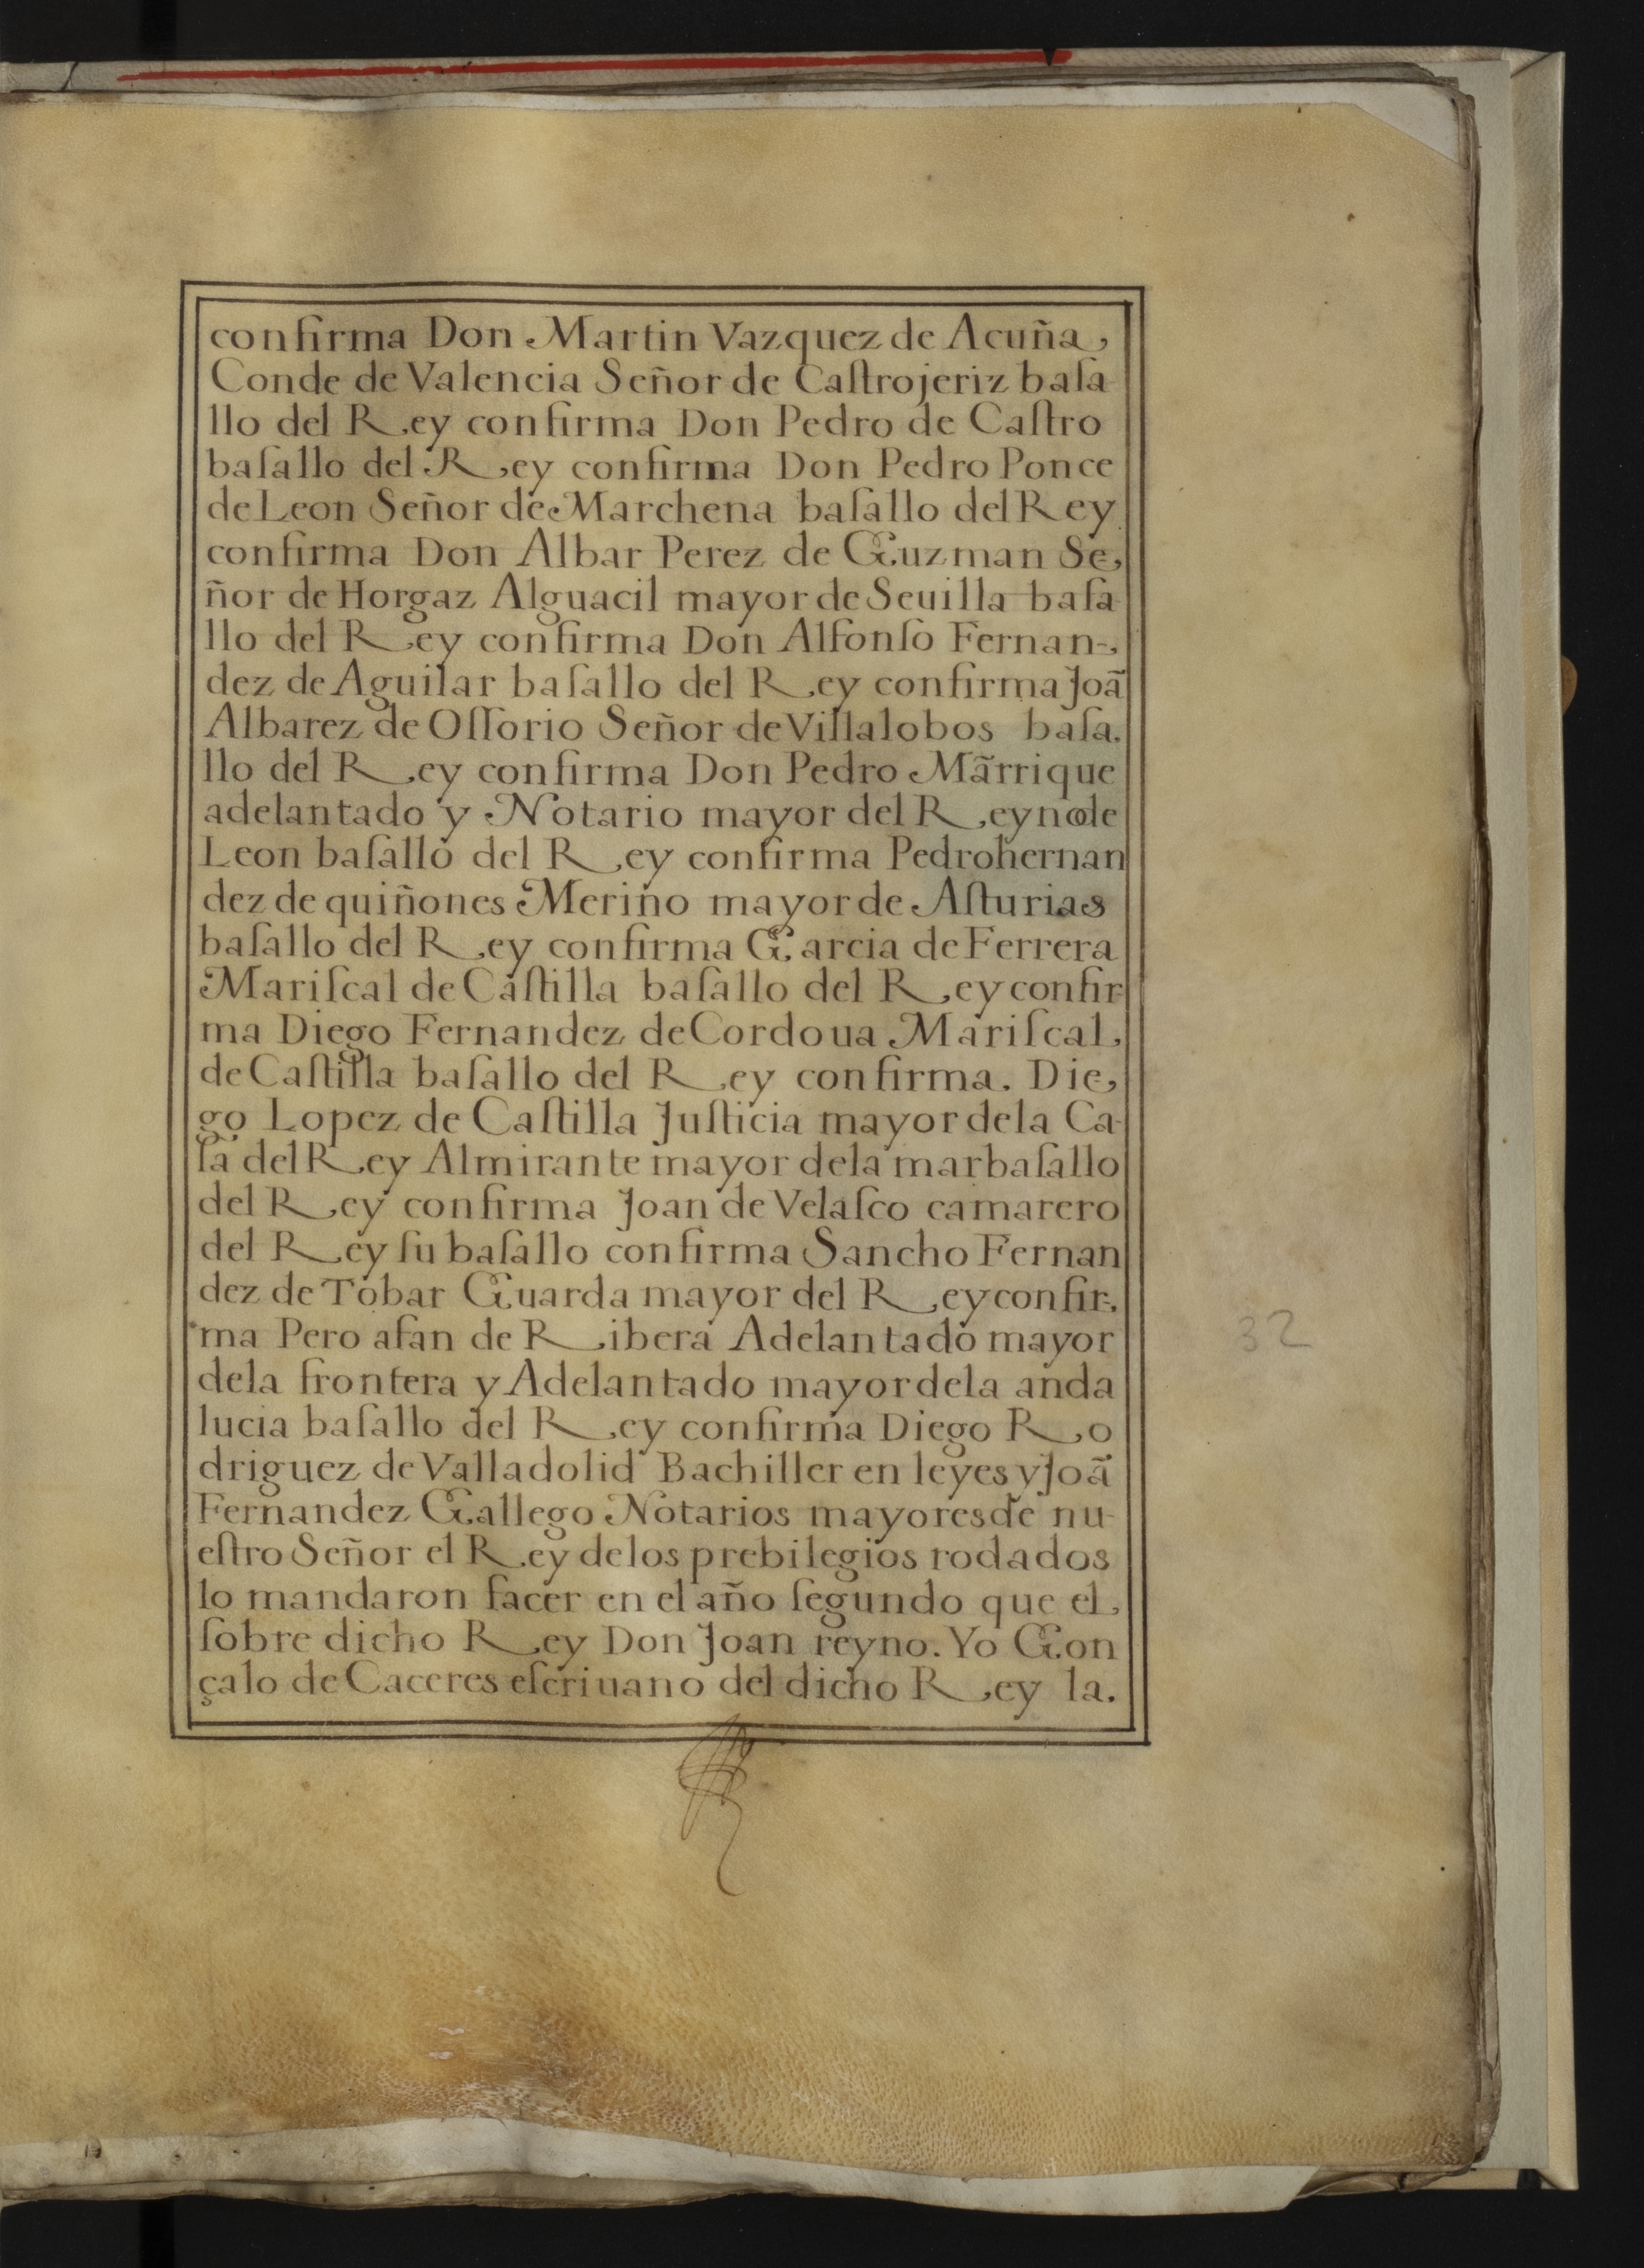 confirma Don Martin Vazquez de Acuña,
Conde de Valencia Señor de Caſtrojeriz baſa-
llo del Rey confirma Don Pedro de Caſtro
baſallo del Rey confirma Don Pedro Ponce
de Leon Señor de Marchena baſallo del Rey
confirma Don Albar Perez de Guzman Se,
ñor de Horgaz Alguacil mayor de Seuilla baſa-
llo del Rey confirma Don Alfonſo Fernan-,
dez de Aguilar baſallo del Rey confirma Joã
Albarez de Oſſorio Señor de Villalobos baſa.
llo del Rey confirma Don Pedro Mãrrique
adelantado y Notario mayor del Reyno de
Leon baſallo del Rey confirma Pedrohernan
dez de quiñones Merino mayor de Aſturias
baſallo del Rey confirma Garcia de Ferrera
Mariſcal de Caſtilla baſallo del Rey confir-
ma Diego Fernandez de Cordoua Mariſcal,
de Caſtilla baſallo del Rey confirma. Die,
go Lopez de Caſtilla Juſticia mayor dela Ca-
ſa del Rey Almirante mayor dela mar baſallo
del Rey confirma Joan de Velaſco camarero
del Rey ſu baſallo confirma Sancho Fernan
dez de Tobar Guarda mayor del Rey confir-,
ma Pero afan de Ribera Adelantado mayor
dela frontera y Adelantado mayor dela anda
lucia baſallo del Rey confirma Diego Ro
driguez de Valladolid Bachiller en leyes y Joã
Fernandez Gallego Notarios mayores de nu-
eſtro Señor el Rey delos prebilegios rodados
lo mandaron facer en el año ſegundo que el,
ſobre dicho Rey Don Joan reyno. Yo Gon
çalo de Caceres eſcriuano del dicho Rey la.
32